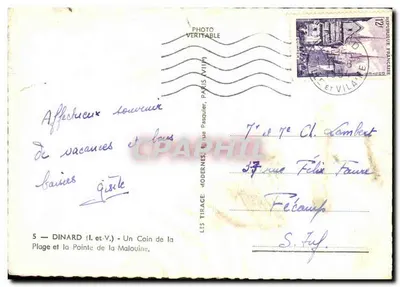 PHOTO
VERITABLE
12F
REPUBLIQUE FRANÇAISE
ET VILAINE
Affectueux souvenir
de vacances et bons
baisers Gisèle
LES TIRAGES MODERNES, rue Pasquier, PARIS (VIIIe)
CPARAMA
Mr et Me Ch. Lambert
37 rue Félix Faure
Fécamp
S. Inf.
5 — DINARD (I. et V.) - Un Coin de la
Plage et la Pointe de la Malouine.